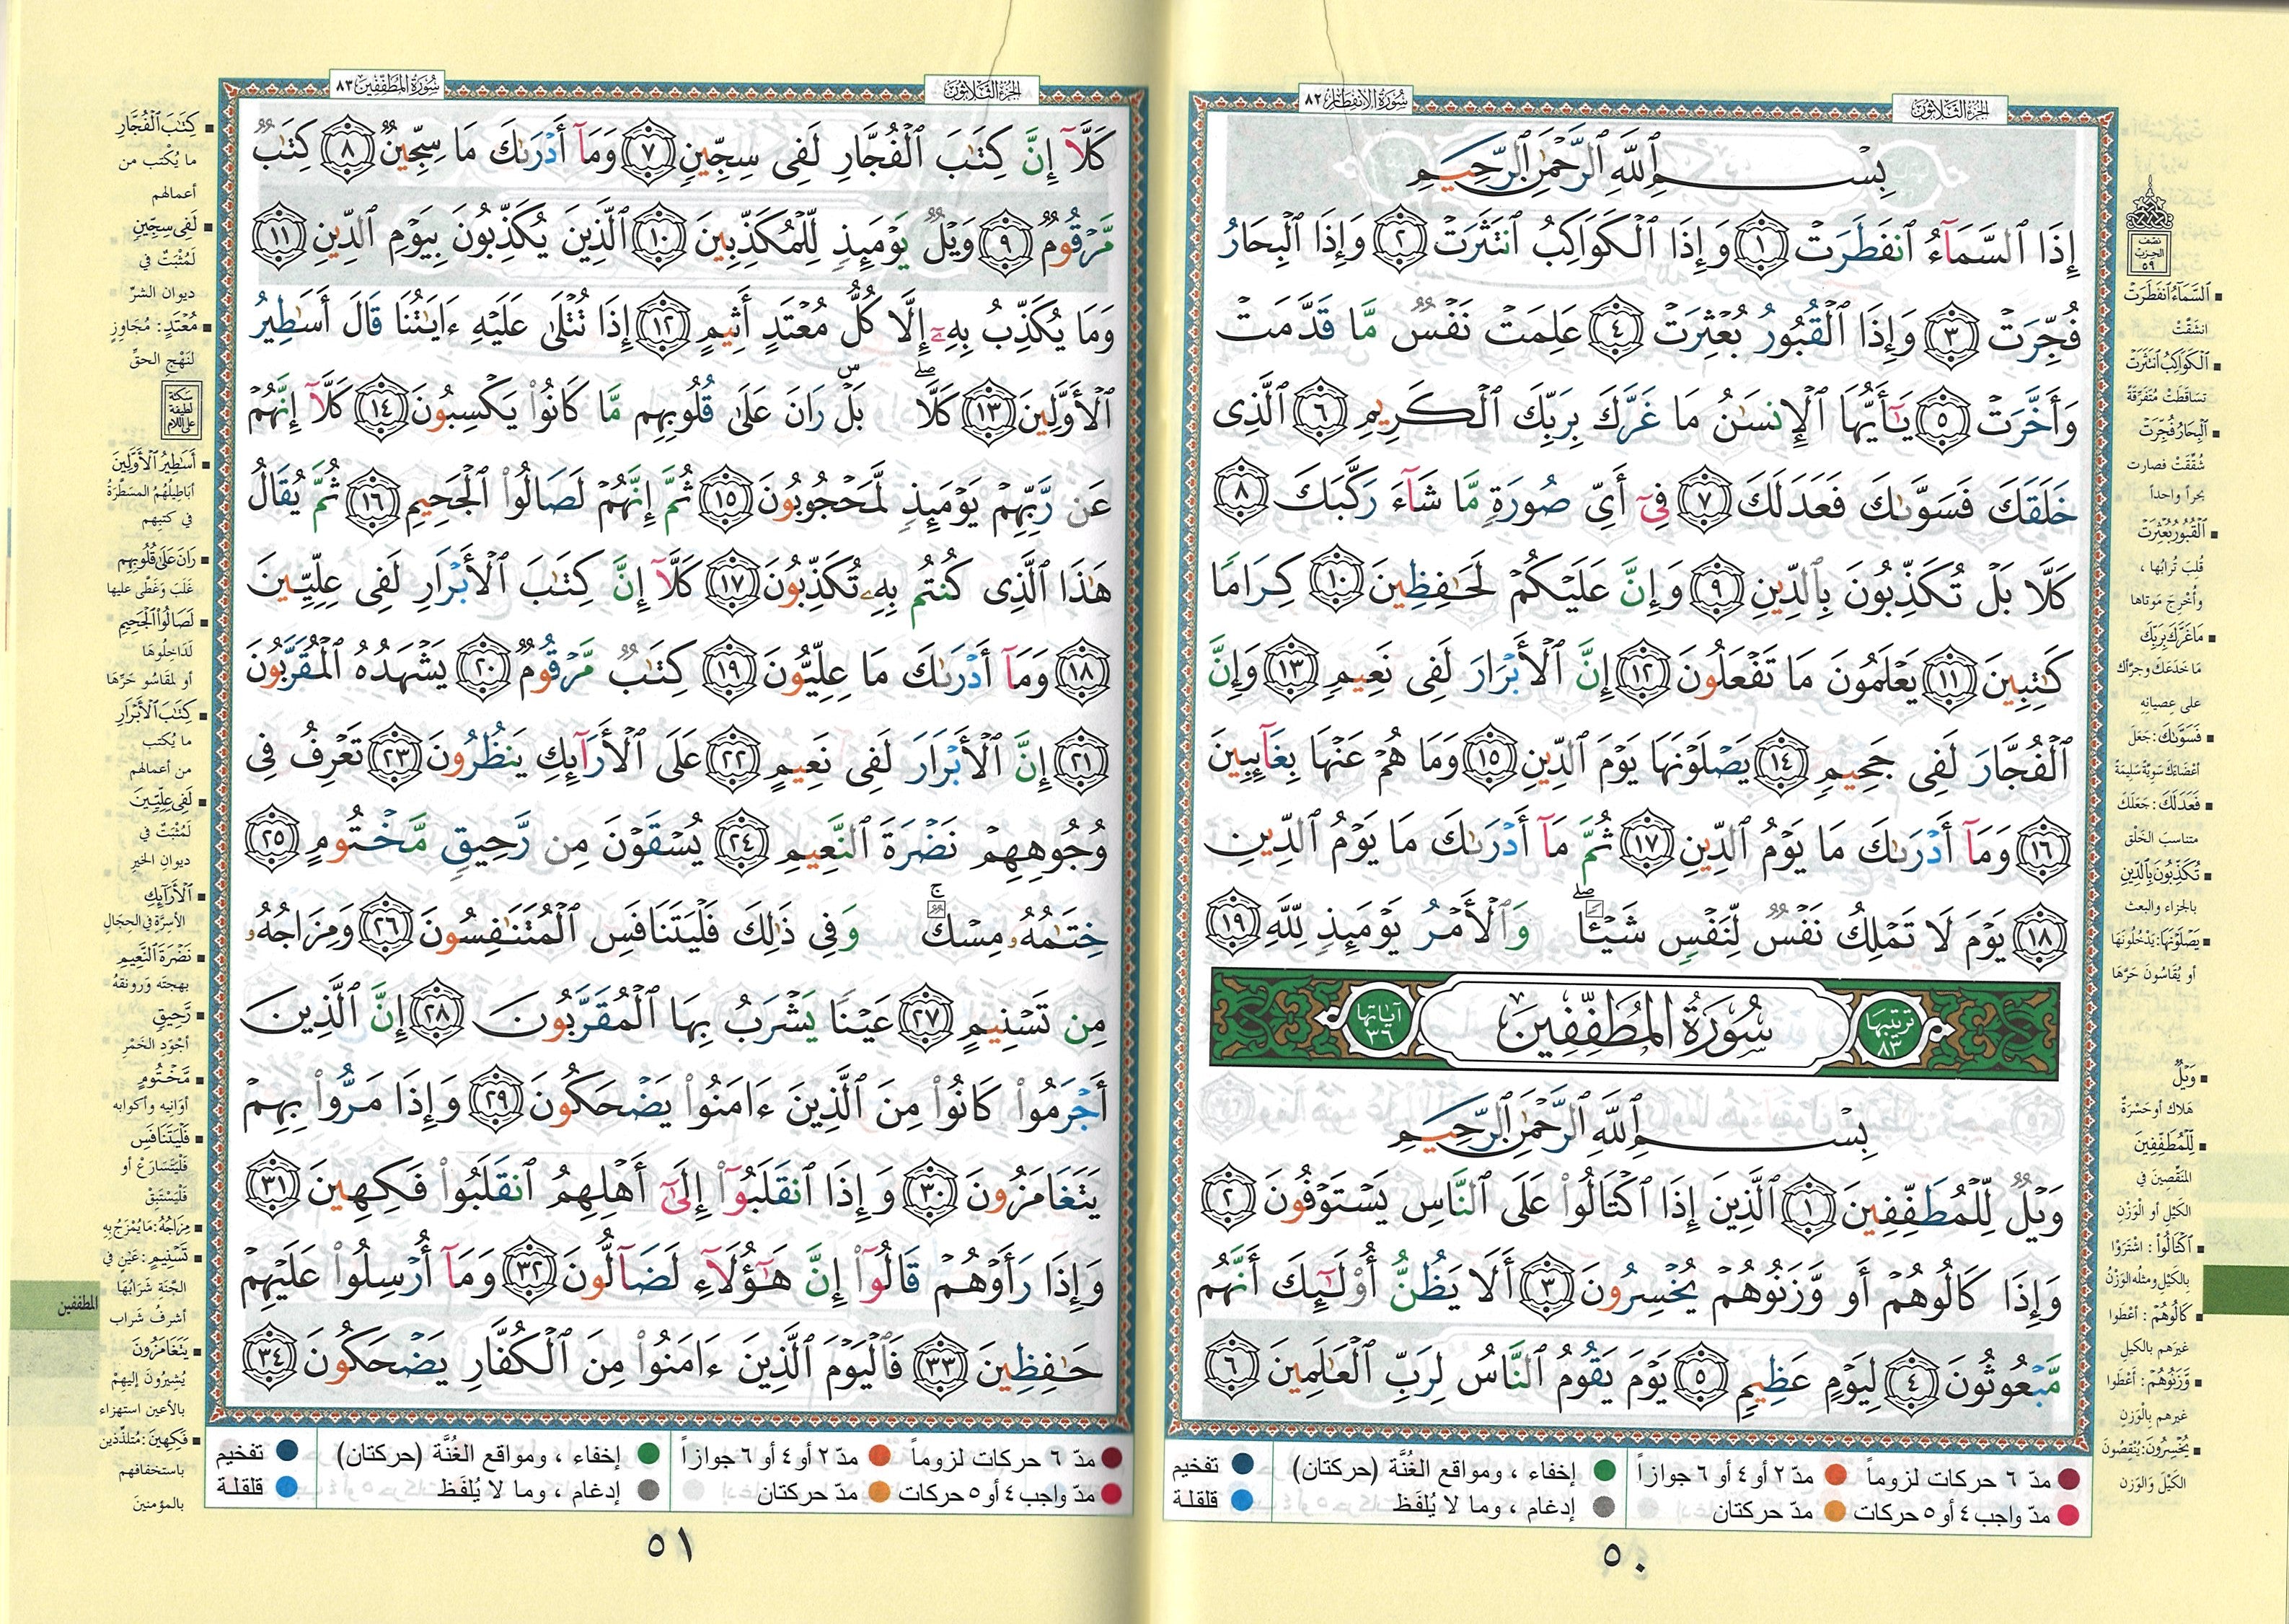 الجزء الثلاثون
سورة الانفطار ٨٢
بِسْمِ ٱللَّهِ ٱلرَّحْمَٰنِ ٱلرَّحِيمِ
إِذَا ٱلسَّمَآءُ ٱنفَطَرَتْ ١ وَإِذَا ٱلْكَوَاكِبُ ٱنتَثَرَتْ ٢ وَإِذَا ٱلْبِحَارُ
فُجِّرَتْ ٣ وَإِذَا ٱلْقُبُورُ بُعْثِرَتْ ٤ عَلِمَتْ نَفْسٌ مَّا قَدَّمَتْ
وَأَخَّرَتْ ٥ يَٰٓأَيُّهَا ٱلْإِنسَٰنُ مَا غَرَّكَ بِرَبِّكَ ٱلْكَرِيمِ ٦ ٱلَّذِى
خَلَقَكَ فَسَوَّىٰكَ فَعَدَلَكَ ٧ فِىٓ أَىِّ صُورَةٍ مَّا شَآءَ رَكَّبَكَ ٨
كَلَّا بَلْ تُكَذِّبُونَ بِٱلدِّينِ ٩ وَإِنَّ عَلَيْكُمْ لَحَٰفِظِينَ ١٠ كِرَامًا
كَٰتِبِينَ ١١ يَعْلَمُونَ مَا تَفْعَلُونَ ١٢ إِنَّ ٱلْأَبْرَارَ لَفِى نَعِيمٍ ١٣ وَإِنَّ
ٱلْفُجَّارَ لَفِى جَحِيمٍ ١٤ يَصْلَوْنَهَا يَوْمَ ٱلدِّينِ ١٥ وَمَا هُمْ عَنْهَا بِغَآئِبِينَ
١٦ وَمَآ أَدْرَىٰكَ مَا يَوْمُ ٱلدِّينِ ١٧ ثُمَّ مَآ أَدْرَىٰكَ مَا يَوْمُ ٱلدِّينِ
١٨ يَوْمَ لَا تَمْلِكُ نَفْسٌ لِّنَفْسٍ شَيْـًٔا ۖ وَٱلْأَمْرُ يَوْمَئِذٍ لِّلَّهِ ١٩
ترتيبها ٨٣ سُورَةُ المُطَفِّفِينَ آياتها ٣٦
بِسْمِ ٱللَّهِ ٱلرَّحْمَٰنِ ٱلرَّحِيمِ
وَيْلٌ لِّلْمُطَفِّفِينَ ١ ٱلَّذِينَ إِذَا ٱكْتَالُوا۟ عَلَى ٱلنَّاسِ يَسْتَوْفُونَ ٢
وَإِذَا كَالُوهُمْ أَو وَّزَنُوهُمْ يُخْسِرُونَ ٣ أَلَا يَظُنُّ أُو۟لَٰٓئِكَ أَنَّهُم
مَّبْعُوثُونَ ٤ لِيَوْمٍ عَظِيمٍ ٥ يَوْمَ يَقُومُ ٱلنَّاسُ لِرَبِّ ٱلْعَٰلَمِينَ ٦
نصف
الحزب
٥٩
ٱلسَّمَآءُ ٱنفَطَرَتْ
انشقَّتْ
ٱلْكَوَاكِبُ ٱنتَثَرَتْ
تساقَطَتْ مُتَفَرِّقَةً
ٱلْبِحَارُ فُجِّرَتْ
شُقِّقَتْ فصارت
بحراً واحداً
ٱلْقُبُورُ بُعْثِرَتْ
قُلِبَ تُرابُها ،
وأُخْرِجَ مَوتاها
مَا غَرَّكَ بِرَبِّكَ
مَا خَدَعَكَ وجرَّأك
على عِصيانِهِ
فَسَوَّىٰكَ: جَعَلَ
أعْضَاءَكَ سَوِيَّةً سَلِيمَةً
فَعَدَلَكَ: جَعَلَكَ
متناسبَ الخَلْق
تُكَذِّبُونَ بِٱلدِّينِ
بالجزاء والبعث
يَصْلَوْنَهَا: يَدْخُلُونَهَا
أو يُقَاسُونَ حَرَّهَا
وَيْلٌ
هَلاك أو حَسْرَةٌ
لِّلْمُطَفِّفِينَ
المُنَقِّصِينَ في
الكَيْلِ أو الْوَزْنِ
ٱكْتَالُوا۟: اشْتَرَوْا
بالكَيْلِ ومثلُه الوَزْنُ
كَالُوهُمْ: أعْطَوا
غيرَهم بالكيلِ
وَّزَنُوهُمْ: أَعْطَوا
غيرهم بالْوَزنِ
يُخْسِرُونَ: يُنْقِصُونَ
الكَيْلَ وَالوَزنَ
مدّ ٦ حركات لزوماً مدّ ٢ أو ٤ أو ٦ جوازاً إخفاء ، ومواقع الغُنَّة (حركتان) تفخيم
مدّ واجب ٤ أو ٥ حركات مدّ حركتان إدغام ، وما لا يُلفَظ قلقلة
٥٠
الجزء الثلاثون
سورة المطففين ٨٣
كَلَّآ إِنَّ كِتَٰبَ ٱلْفُجَّارِ لَفِى سِجِّينٍ ٧ وَمَآ أَدْرَىٰكَ مَا سِجِّينٌ ٨ كِتَٰبٌ
مَّرْقُومٌ ٩ وَيْلٌ يَوْمَئِذٍ لِّلْمُكَذِّبِينَ ١٠ ٱلَّذِينَ يُكَذِّبُونَ بِيَوْمِ ٱلدِّينِ ١١
وَمَا يُكَذِّبُ بِهِۦٓ إِلَّا كُلُّ مُعْتَدٍ أَثِيمٍ ١٢ إِذَا تُتْلَىٰ عَلَيْهِ ءَايَٰتُنَا قَالَ أَسَٰطِيرُ
ٱلْأَوَّلِينَ ١٣ كَلَّا ۖ بَلْ ۜ رَانَ عَلَىٰ قُلُوبِهِم مَّا كَانُوا۟ يَكْسِبُونَ ١٤ كَلَّآ إِنَّهُمْ
عَن رَّبِّهِمْ يَوْمَئِذٍ لَّمَحْجُوبُونَ ١٥ ثُمَّ إِنَّهُمْ لَصَالُوا۟ ٱلْجَحِيمِ ١٦ ثُمَّ يُقَالُ
هَٰذَا ٱلَّذِى كُنتُم بِهِۦ تُكَذِّبُونَ ١٧ كَلَّآ إِنَّ كِتَٰبَ ٱلْأَبْرَارِ لَفِى عِلِّيِّينَ
١٨ وَمَآ أَدْرَىٰكَ مَا عِلِّيُّونَ ١٩ كِتَٰبٌ مَّرْقُومٌ ٢٠ يَشْهَدُهُ ٱلْمُقَرَّبُونَ
٢١ إِنَّ ٱلْأَبْرَارَ لَفِى نَعِيمٍ ٢٢ عَلَى ٱلْأَرَآئِكِ يَنظُرُونَ ٢٣ تَعْرِفُ فِى
وُجُوهِهِمْ نَضْرَةَ ٱلنَّعِيمِ ٢٤ يُسْقَوْنَ مِن رَّحِيقٍ مَّخْتُومٍ ٢٥
خِتَٰمُهُۥ مِسْكٌ ۚ وَفِى ذَٰلِكَ فَلْيَتَنَافَسِ ٱلْمُتَنَٰفِسُونَ ٢٦ وَمِزَاجُهُۥ
مِن تَسْنِيمٍ ٢٧ عَيْنًا يَشْرَبُ بِهَا ٱلْمُقَرَّبُونَ ٢٨ إِنَّ ٱلَّذِينَ
أَجْرَمُوا۟ كَانُوا۟ مِنَ ٱلَّذِينَ ءَامَنُوا۟ يَضْحَكُونَ ٢٩ وَإِذَا مَرُّوا۟ بِهِمْ
يَتَغَامَزُونَ ٣٠ وَإِذَا ٱنقَلَبُوٓا۟ إِلَىٰٓ أَهْلِهِمُ ٱنقَلَبُوا۟ فَكِهِينَ ٣١
وَإِذَا رَأَوْهُمْ قَالُوٓا۟ إِنَّ هَٰٓؤُلَآءِ لَضَآلُّونَ ٣٢ وَمَآ أُرْسِلُوا۟ عَلَيْهِمْ
حَٰفِظِينَ ٣٣ فَٱلْيَوْمَ ٱلَّذِينَ ءَامَنُوا۟ مِنَ ٱلْكُفَّارِ يَضْحَكُونَ ٣٤
كِتَٰبَ ٱلْفُجَّارِ
ما يُكْتب من
أعمالهم
لَفِى سِجِّينٍ
لَمُثْبَتٌ في
ديوان الشرِّ
مُعْتَدٍ: مُجَاوِزٍ
لنَهْجِ الحقِّ
سكتة
لطيفة
على اللام
أَسَٰطِيرُ ٱلْأَوَّلِينَ
أباطِيلُهُمُ المسَطَّرَةُ
في كتبِهم
رَانَ عَلَىٰ قُلُوبِهِم
غَلَبَ وَغَطَّى عليها
لَصَالُوا۟ ٱلْجَحِيمِ
لَدَاخِلُوهَا
أو لمقاسُو حَرِّهَا
كِتَٰبَ ٱلْأَبْرَارِ
ما يُكتب
من أعمالهم
لَفِى عِلِّيِّينَ
لَمُثْبَتٌ في
ديوانِ الخيرِ
ٱلْأَرَآئِكِ
الأسِرَّة في الحجال
نَضْرَةَ ٱلنَّعِيمِ
بهجته وَرونقهُ
رَّحِيقٍ
أجْوَدِ الخَمْرِ
مَّخْتُومٍ
أوَانيه وأكوابه
فَلْيَتَنَافَسِ
فَلْيَتَسَارَعْ أو
فَلْيَسْتَبِقْ
مِزَاجُهُ: مَا يُمْزَجُ بِهِ
تَسْنِيمٍ: عَيْنٍ في
الجَنَّةِ شَرَابُهَا
أشرفُ شَراب
يَتَغَامَزُونَ
يُشِيرُونَ إليهِمْ
بالأعين استهزاء
فَكِهِينَ: مُتلذِّذين
باستخفافهم
بالمؤمنينَ
المطففين
مدّ ٦ حركات لزوماً مدّ ٢ أو ٤ أو ٦ جوازاً إخفاء ، ومواقع الغُنَّة (حركتان) تفخيم
مدّ واجب ٤ أو ٥ حركات مدّ حركتان إدغام ، وما لا يُلفَظ قلقلة
٥١